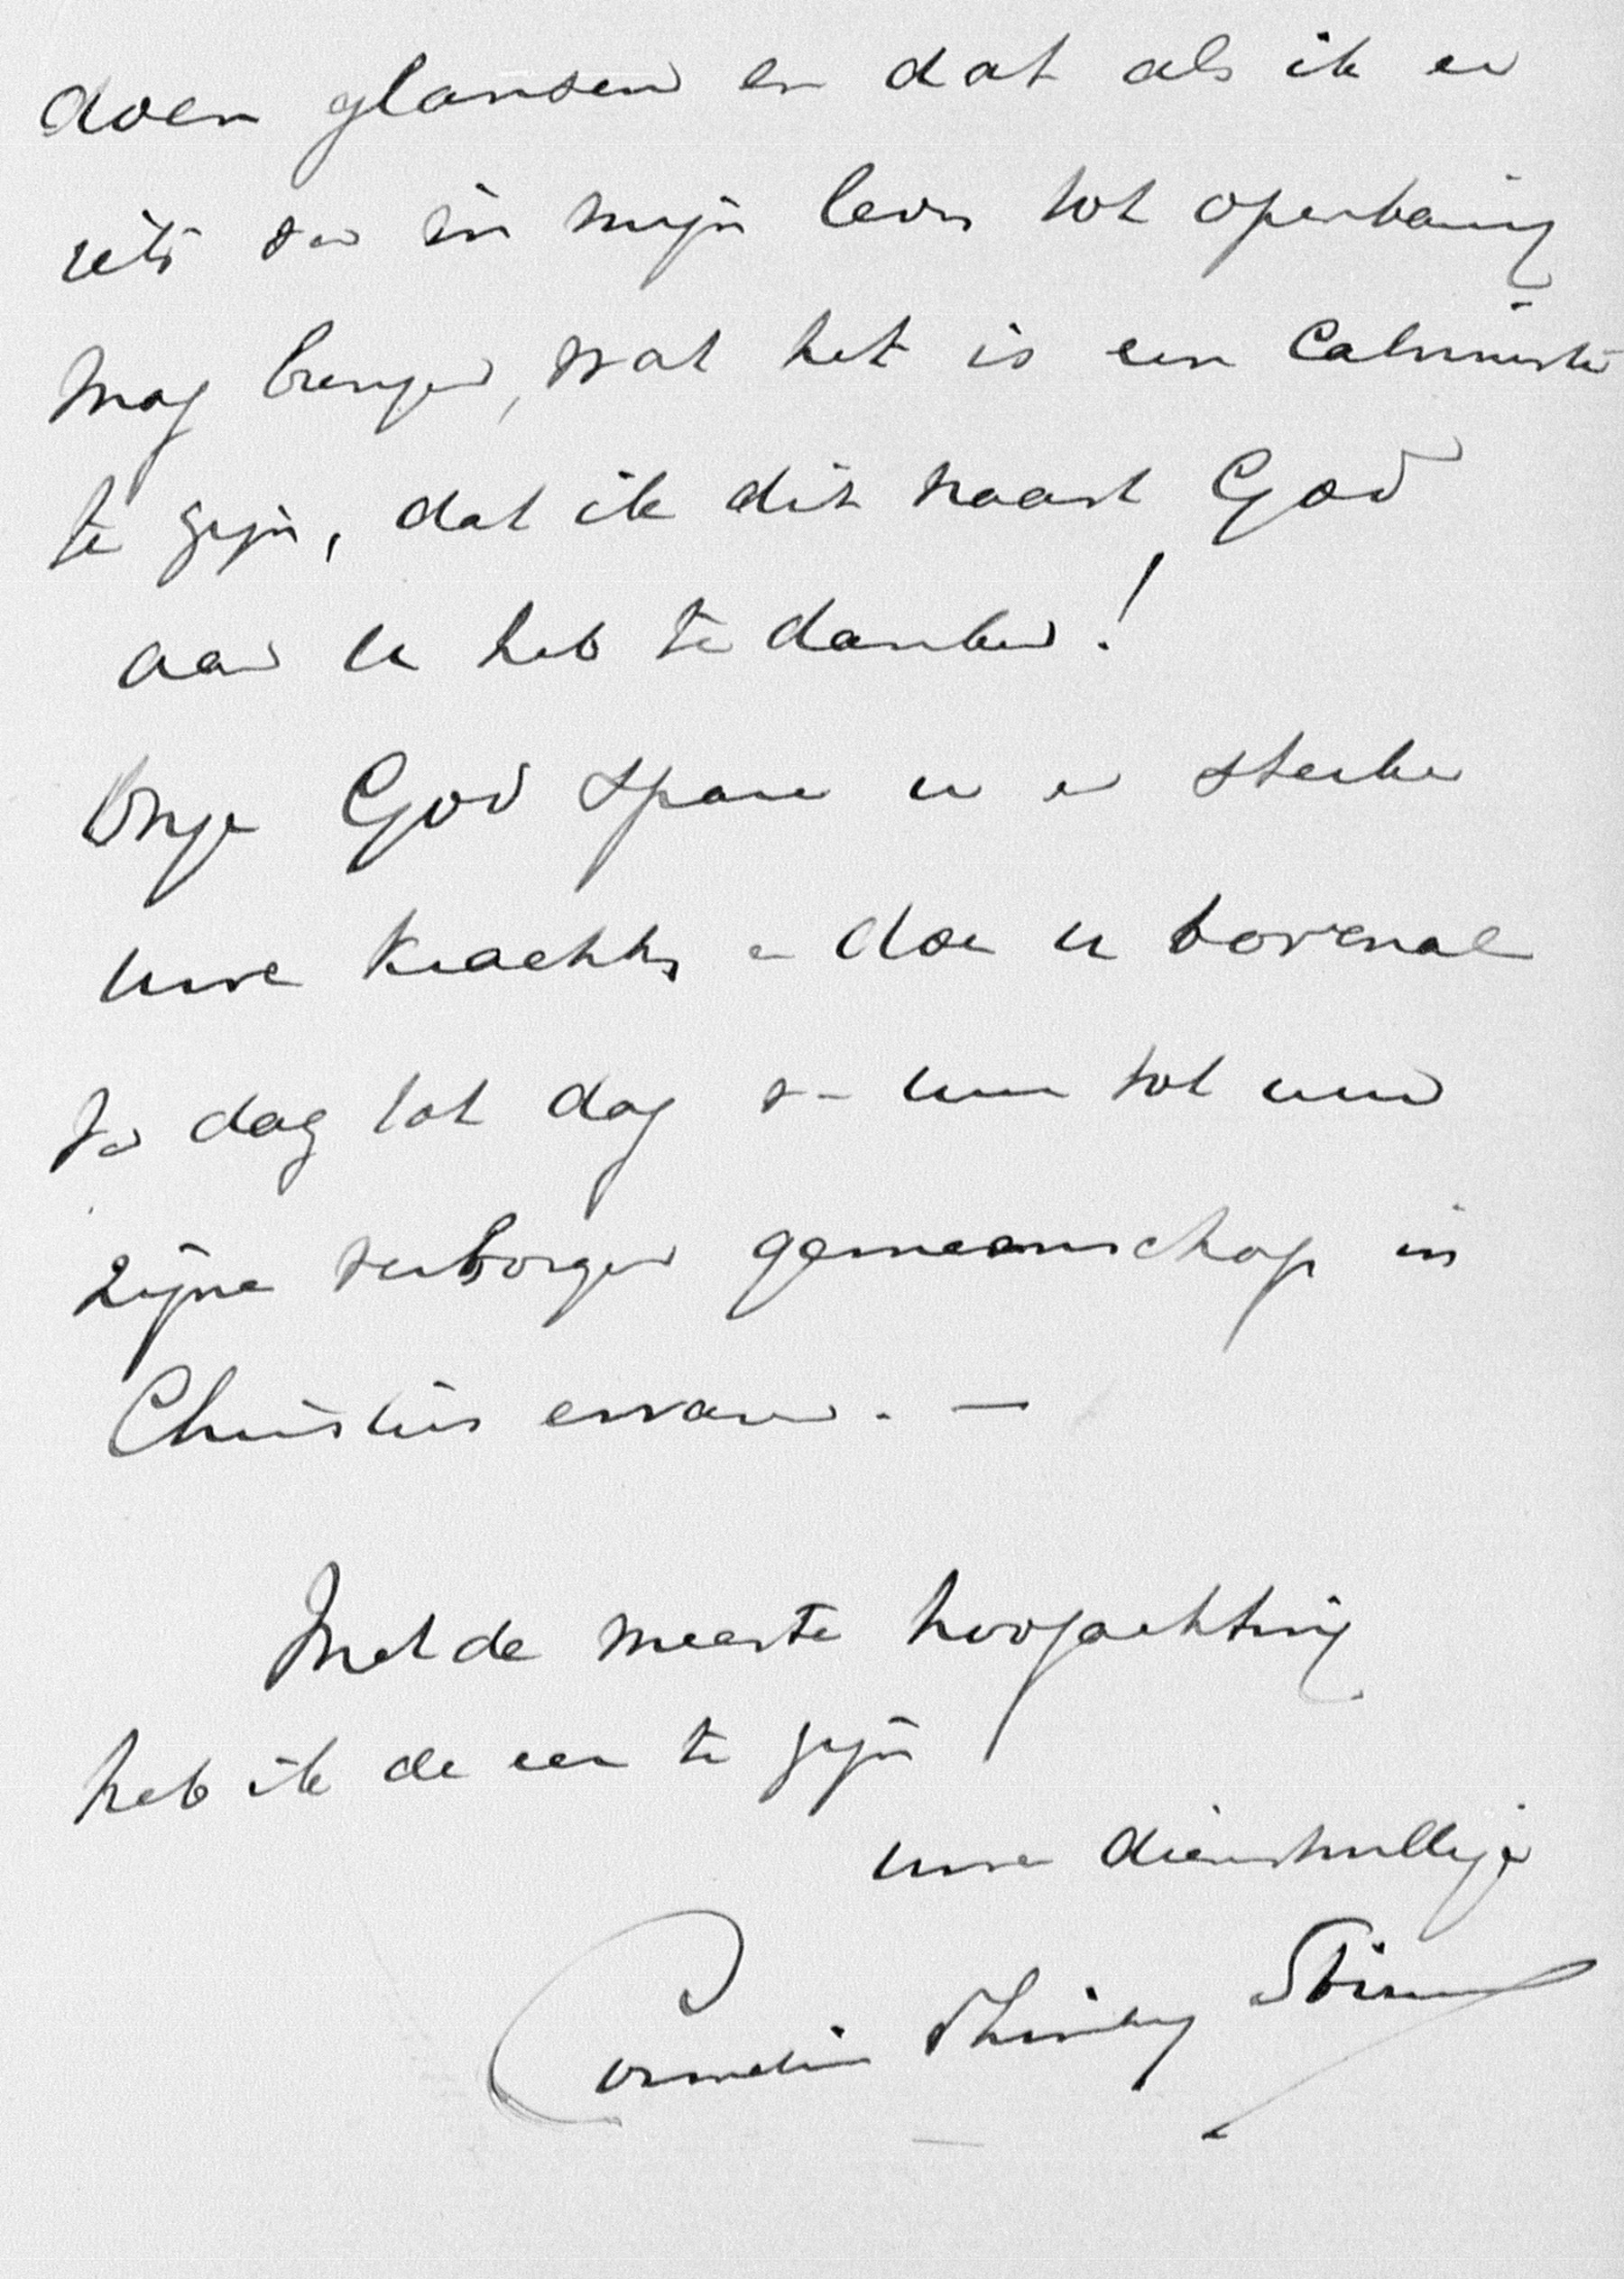 doen glansen en dat als ik er
iets van in mijn leven tot openbaring
mag brengen, wat het is een Calviniste
te zijn, dat ik dit naast God
aan U heb te danken!
Onze God spare u en sterke
uwe krachten en doe u bovenal
van dag tot dag van uur tot uur
zijne verborgen gemeenschap in
Christus ervaren. —
Met de meeste hoogachting
heb ik de eer te zijn
uwe dienstwillige
Cornelia